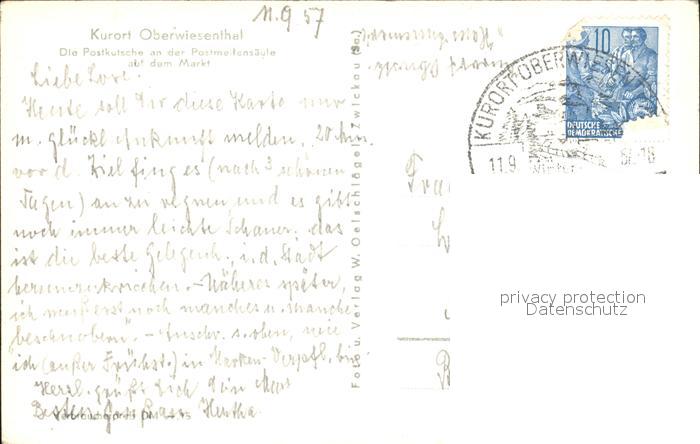 11.9.57
Kurort Oberwiesenthal
Die Postkutsche an der Postmeilensäule
auf dem Markt
Liebe Lore.
Heute soll Dir diese Karte nur
m. glückl. Ankunft melden. 20 km.
vor d. Ziel fing es (nach 3 schönen
Tagen) an zu regnen und es gibt
noch immer leichte Schauer. das
ist die beste Gelegenh., i. d. Stadt
herumzukriechen. - Näheres später,
ich muß erst noch manches u. manche
beschnobern". - Anschr. s. oben, wie
ich (außer Frühst.) in Marken-Verpfl. bin
Herzl. grüßt Dich Dein
Besten Gruß Hertha
Verbraucherpreis DM
Foto u. Verlag W. Oelschlägel, Zwickau (Sa.)
KURORT OBERWIESEN
11.9.
10
DEUTSCHE
DEMOKRATISCHE
privacy protection
Datenschutz